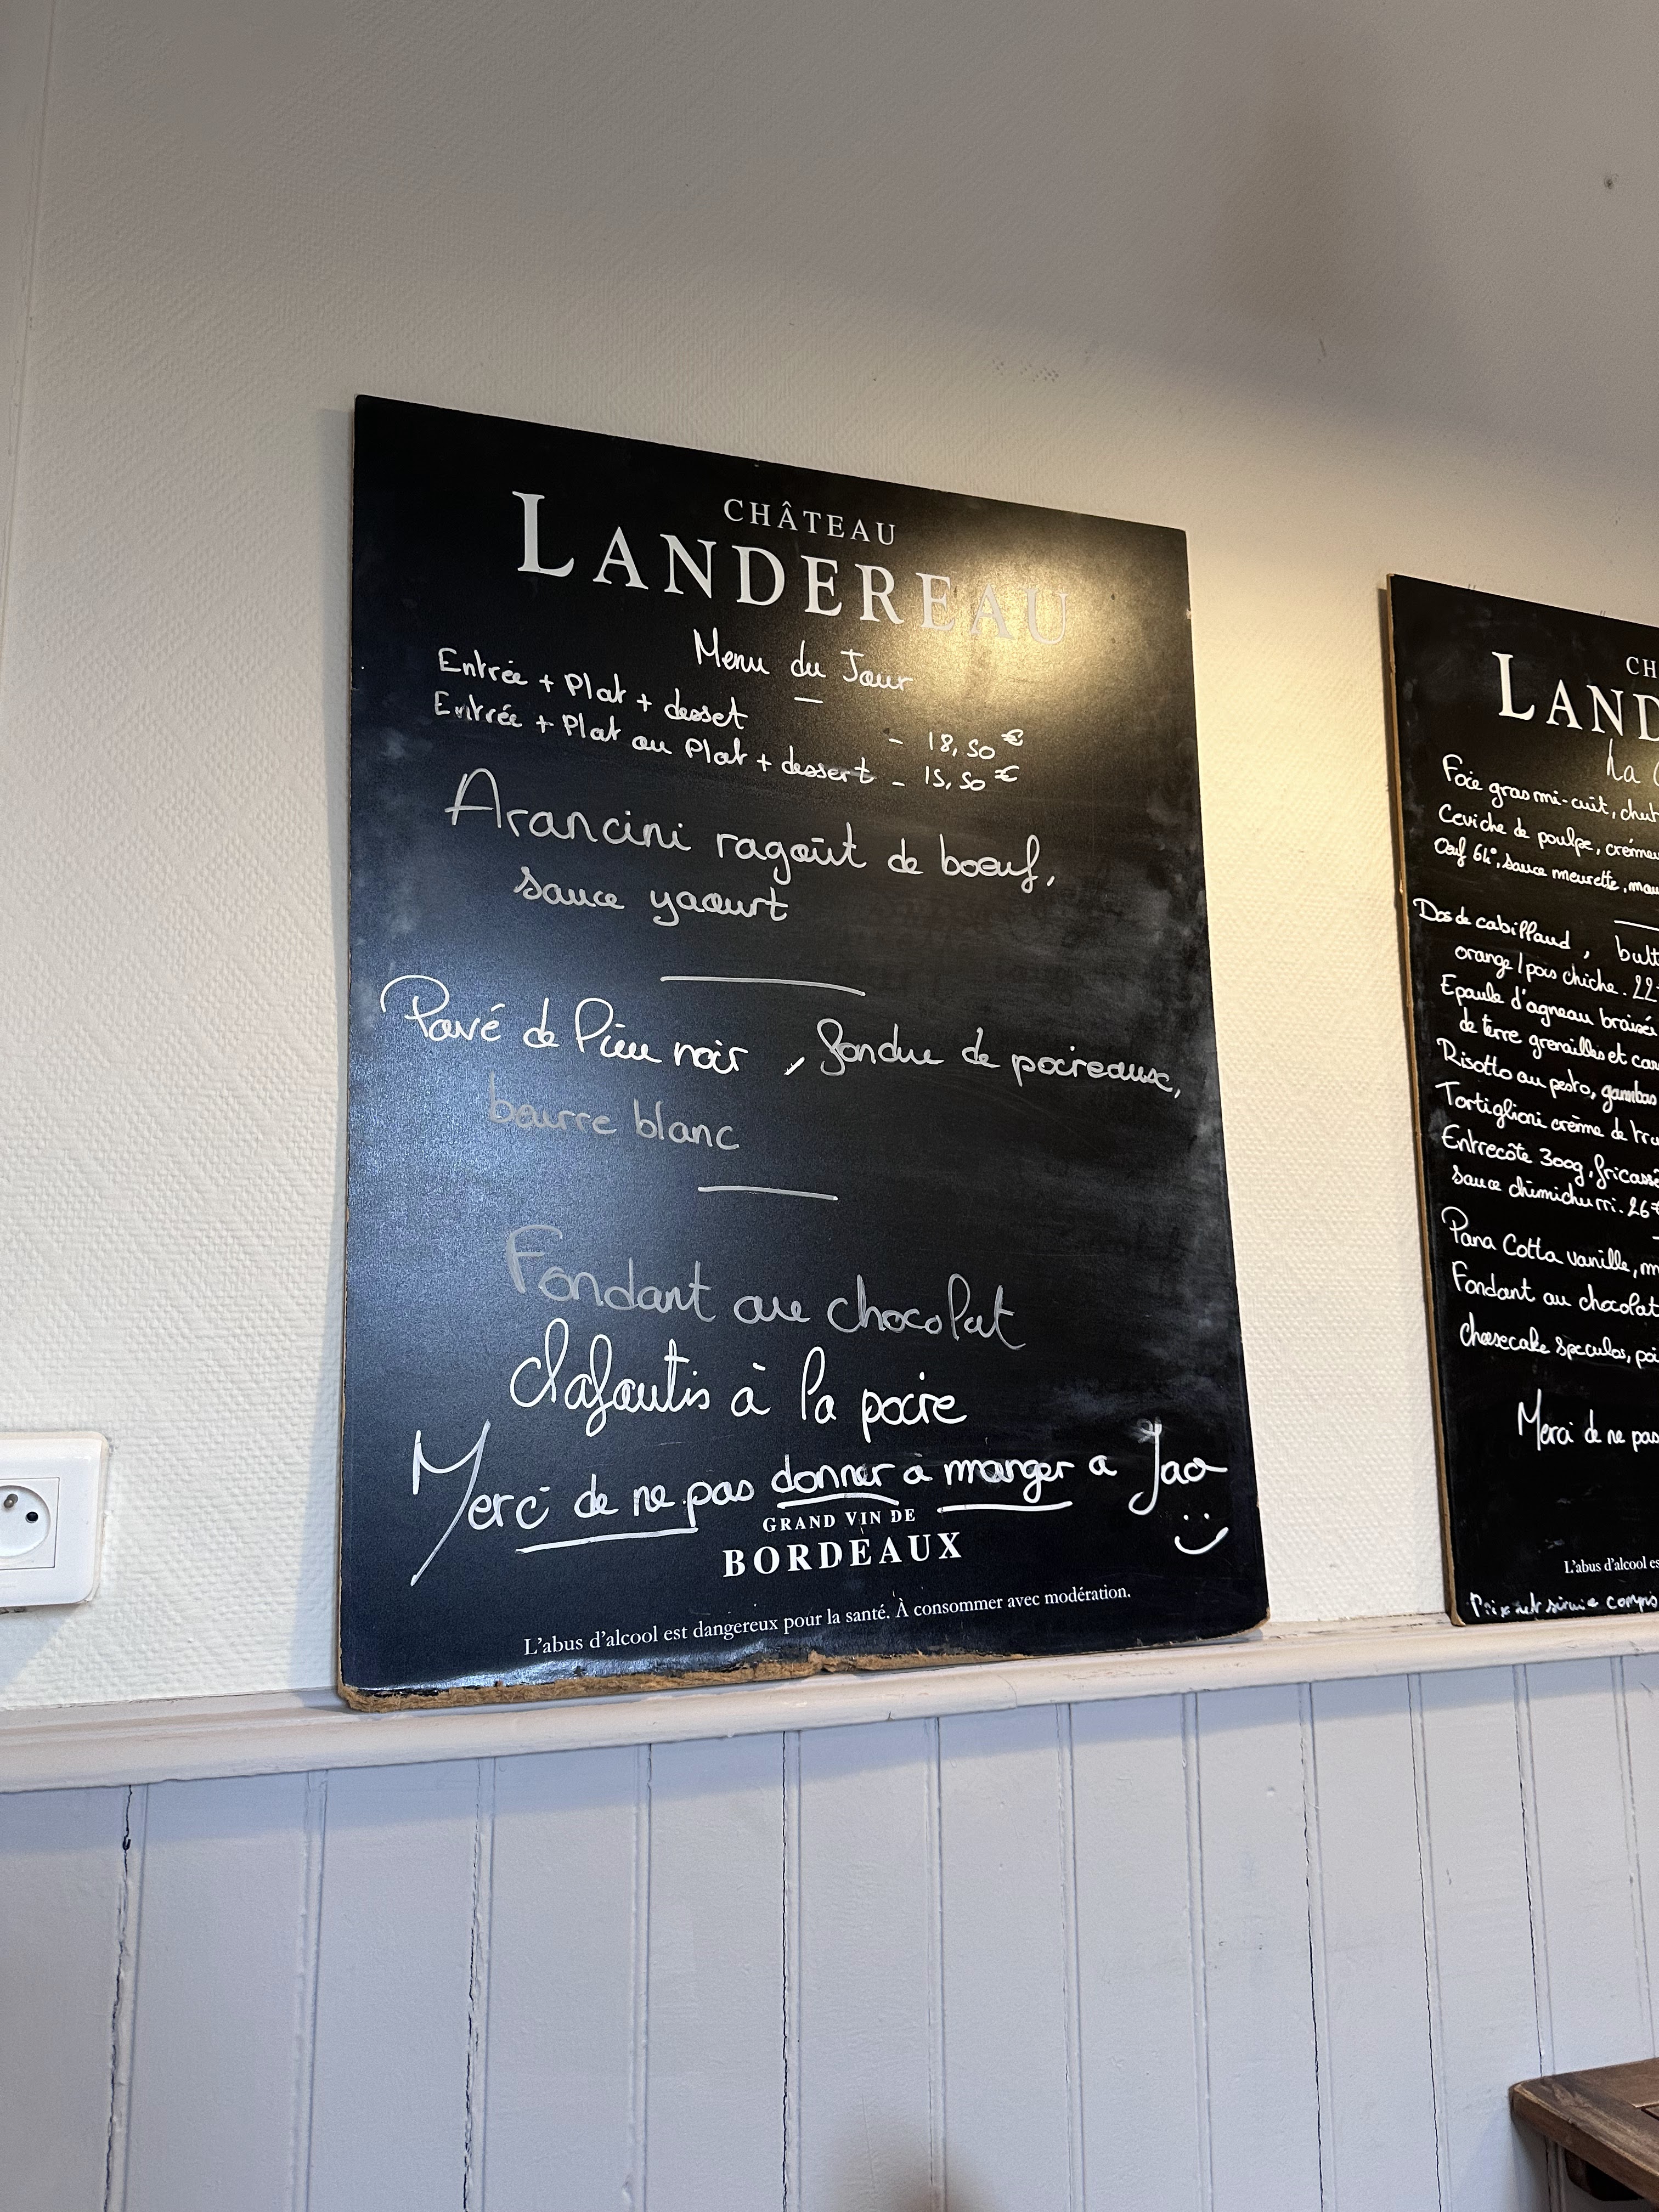 CHÂTEAU
LANDEREAU
Menu du Jour
Entrée + Plat + desset - 18,50 €
Entrée + Plat ou Plat + dessert - 15,50 €
Arancini ragoût de bœuf,
sauce yaourt
Pavé de lieu noir, fondue de poireaux,
beurre blanc
Fondant au chocolat
clafoutis à la poire
Merci de ne pas donner a manger a Jao
GRAND VIN DE
BORDEAUX
L'abus d'alcool est dangereux pour la santé. À consommer avec modération.
CH
LAND
La
Foie gras mi-cuit, chut
Ceviche de poulpe, crémeu
Œuf 64°, sauce meurette, mou
Dos de cabillaud, butt
orange / pois chiche. 22
Epaule d'agneau braisé
de terre grenailles et car
Risotto au pesto, gambas
Tortiglioni crème de tru
Entrecôte 300g, fricassé
sauce chimichurri. 26€
Pana Cotta vanille, m
Fondant au chocolat
cheesecake speculos, poi
Merci de ne pas
L'abus d'alcool es
Prix net service compris